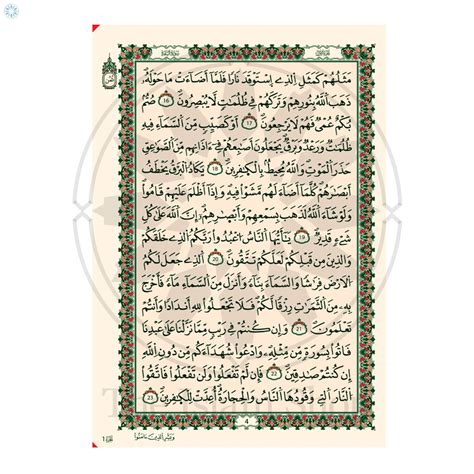 الجزء الأول
سورة البقرة
مَثَلُهُمْ كَمَثَلِ اِ۬لذِے اِ۪سْتَوْقَدَ نَارًا فَلَمَّآ أَضَآءَتْ مَا حَوْلَهُۥ
ذَهَبَ اَ۬للَّهُ بِنُورِهِمْ وَتَرَكَهُمْ فِے ظُلُمَٰتٍ لَّا يُبْصِرُونَ 16 صُمُّۢ
بُكْمٌ عُمْيٌ فَهُمْ لَا يَرْجِعُونَ 17 أَوْ كَصَيِّبٍ مِّنَ اَ۬لسَّمَآءِ فِيهِ
ظُلُمَٰتٌ وَرَعْدٌ وَبَرْقٌ يَجْعَلُونَ أَصَٰبِعَهُمْ فِےٓ ءَاذَانِهِم مِّنَ اَ۬لصَّوَٰعِقِ
حَذَرَ اَ۬لْمَوْتِ وَاللَّهُ مُحِيطُۢ بِالْكٰ۪فِرِينَ 18 يَكَادُ اُ۬لْبَرْقُ يَخْطَفُ
أَبْصَٰرَهُمْ كُلَّمَآ أَضَآءَ لَهُم مَّشَوْاْ فِيهِ وَإِذَآ أَظْلَمَ عَلَيْهِمْ قَامُواْ
وَلَوْ شَآءَ اَ۬للَّهُ لَذَهَبَ بِسَمْعِهِمْ وَأَبْصٰ۪رِهِمْ إِنَّ اَ۬للَّهَ عَلَىٰ كُلِّ
شَےْءٍ قَدِيرٌ 19 يَٰٓأَيُّهَا اَ۬لنَّاسُ اُ۟عْبُدُواْ رَبَّكُمُ اُ۬لذِے خَلَقَكُمْ
وَالذِينَ مِن قَبْلِكُمْ لَعَلَّكُمْ تَتَّقُونَ 20 اَ۬لذِے جَعَلَ لَكُمُ
اُ۬لَارْضَ فِرَٰشًا وَالسَّمَآءَ بِنَآءً وَأَنزَلَ مِنَ اَ۬لسَّمَآءِ مَآءً فَأَخْرَجَ
بِهِۦ مِنَ اَ۬لثَّمَرَٰتِ رِزْقًا لَّكُمْ فَلَا تَجْعَلُواْ لِلهِ أَندَادًا وَأَنتُمْ
تَعْلَمُونَ 21 وَإِن كُنتُمْ فِے رَيْبٍ مِّمَّا نَزَّلْنَا عَلَىٰ عَبْدِنَا
فَاتُواْ بِسُورَةٍ مِّن مِّثْلِهِۦ وَادْعُواْ شُهَدَآءَكُم مِّن دُونِ اِ۬للَّهِ
إِن كُنتُمْ صَٰدِقِينَ 22 فَإِن لَّمْ تَفْعَلُواْ وَلَن تَفْعَلُواْ فَاتَّقُواْ
اُ۬لنَّارَ اَ۬لتِے وَقُودُهَا اَ۬لنَّاسُ وَالْحِجَارَةُ أُعِدَّتْ لِلْكٰ۪فِرِينَ 23
4
وبشر الذين ءامنوا
1